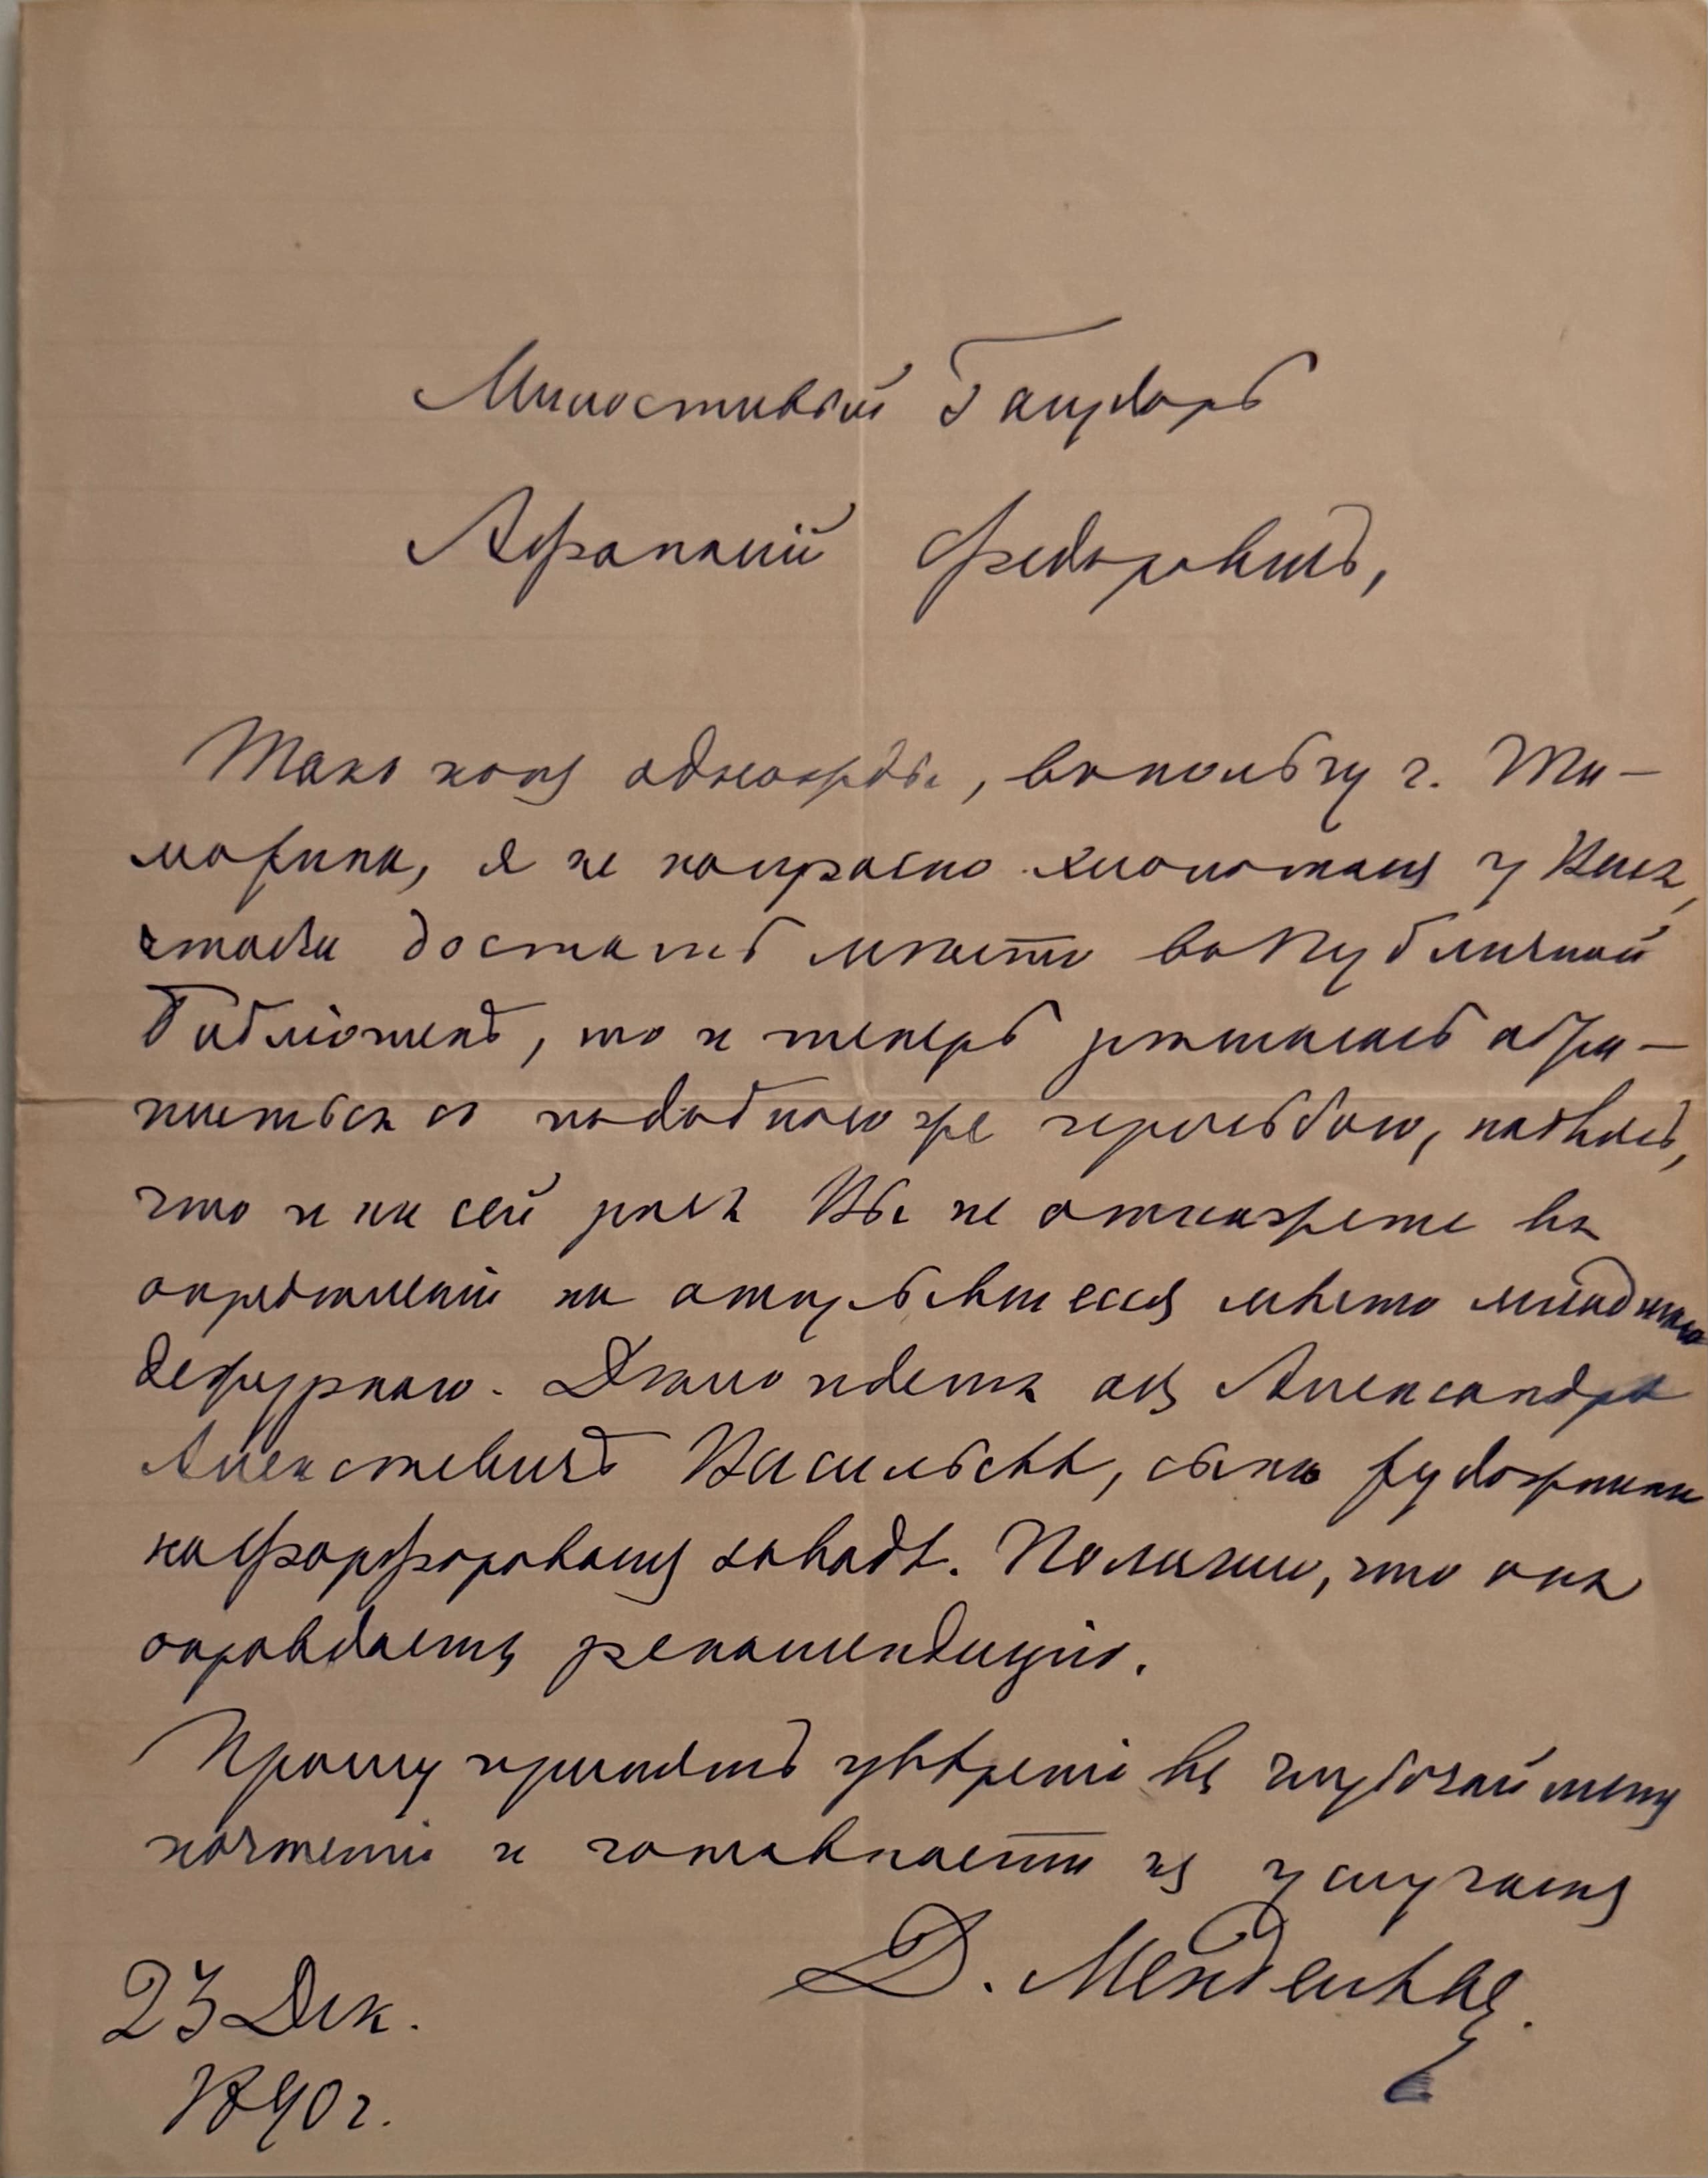 Милостивый Государь
Афанасий Федоровичъ,
Такъ какъ однажды, в пользу г. Ти-
мофеева, я не напрасно хлопоталъ у Васъ,
чтобы достать мѣсто въ Публичной
Библіотекѣ, то и теперь рѣшаюсь обра-
титься съ подобною же просьбою, надѣясь,
что и на сей разъ Вы не откажете въ
опредѣленіи на открывшееся мѣсто младшаго
дежурнаго. Дѣло идетъ объ Александрѣ
Алексѣевичѣ Васильевѣ, сынѣ художника
на фарфоровомъ заводѣ. Полагаю, что онъ
оправдаетъ рекомендацію.
Прошу принять увѣреніе въ глубочайшемъ
почтеніи и готовности къ услугамъ
Д. Менделѣевъ.
23 Дек.
1890 г.